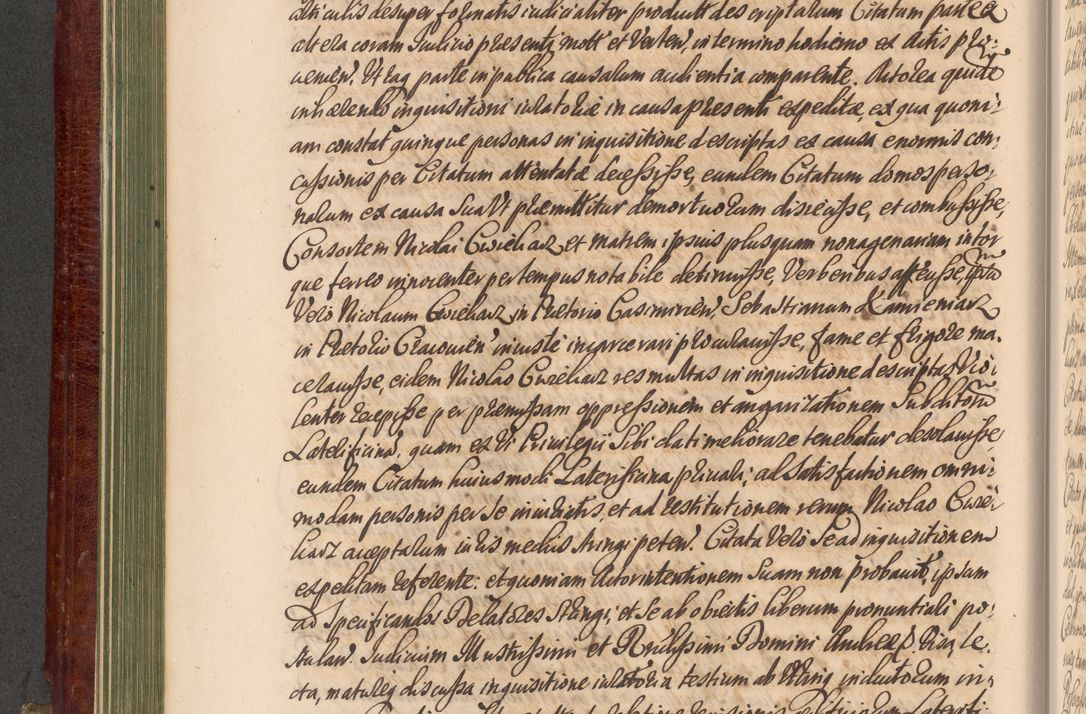 articulis desuper formatis iudicialiter productis descriptarum Citatum parte ex
altera coram Iudicio presenti mott et Verten, in termino hodierno ex actis pro:
uenien. Utraq parte in publica causarum audientia comparente. Actorea quidem
inhærendo inquisitioni iuratoriæ in causa presenti expeditæ, ex qua quoni:
am constat quinque personas in inquisitione descriptas ex causa enormis con:
cussionis per Citatum attentatæ decessisse, eundem Citatum domos perso:
nalum ex causa sua Vt præmittitur demortuorum disiecisse, et combussisse,
Consortem Nicolai Cureharz et matrem ipsius plusquam nonagenariam in tor
que ferreo innocenter per tempus notabile detinuisse, Verberibus affecisse, ipsum
Vero Nicolaum Cureharz in Prætorio Casimirien. Sebastianum Kamieniarz
in Prætorio Cracouien iniuste incarcerari procurauisse, fame et frigore ma.
cerauisse, eidem Nicolao Cureharz res multas in inquisitione descriptas Vio:
lenter recepisse per præmissam oppressionem et angarizationem Subditorum
Laterificina, quam ex Vi Priuilegii Sibi dati meliorare tenebatur desolauisse
eundem Citatum huiusmodi Laterificina priuari, ad Satisfactionem omni:
modam personis per Se iniuriatis, et ad restitutionem rerum Nicolao Cure:
harz acceptarum iuris mediis stringi peten. Citata Vero Se ad inquisitionem
expeditam referente: et quoniam Actor intentionem Suam non probauit, ipsum
ad Specificandos Delatores Stringi, et Se ab obiectis liberum pronuntiari po:
stulan. Iudicium Illustrissimi et Rndissimi Domini Andreæ
cta, matureq discussa inquisitione iuratoria testium ab utrinq inductorum in: